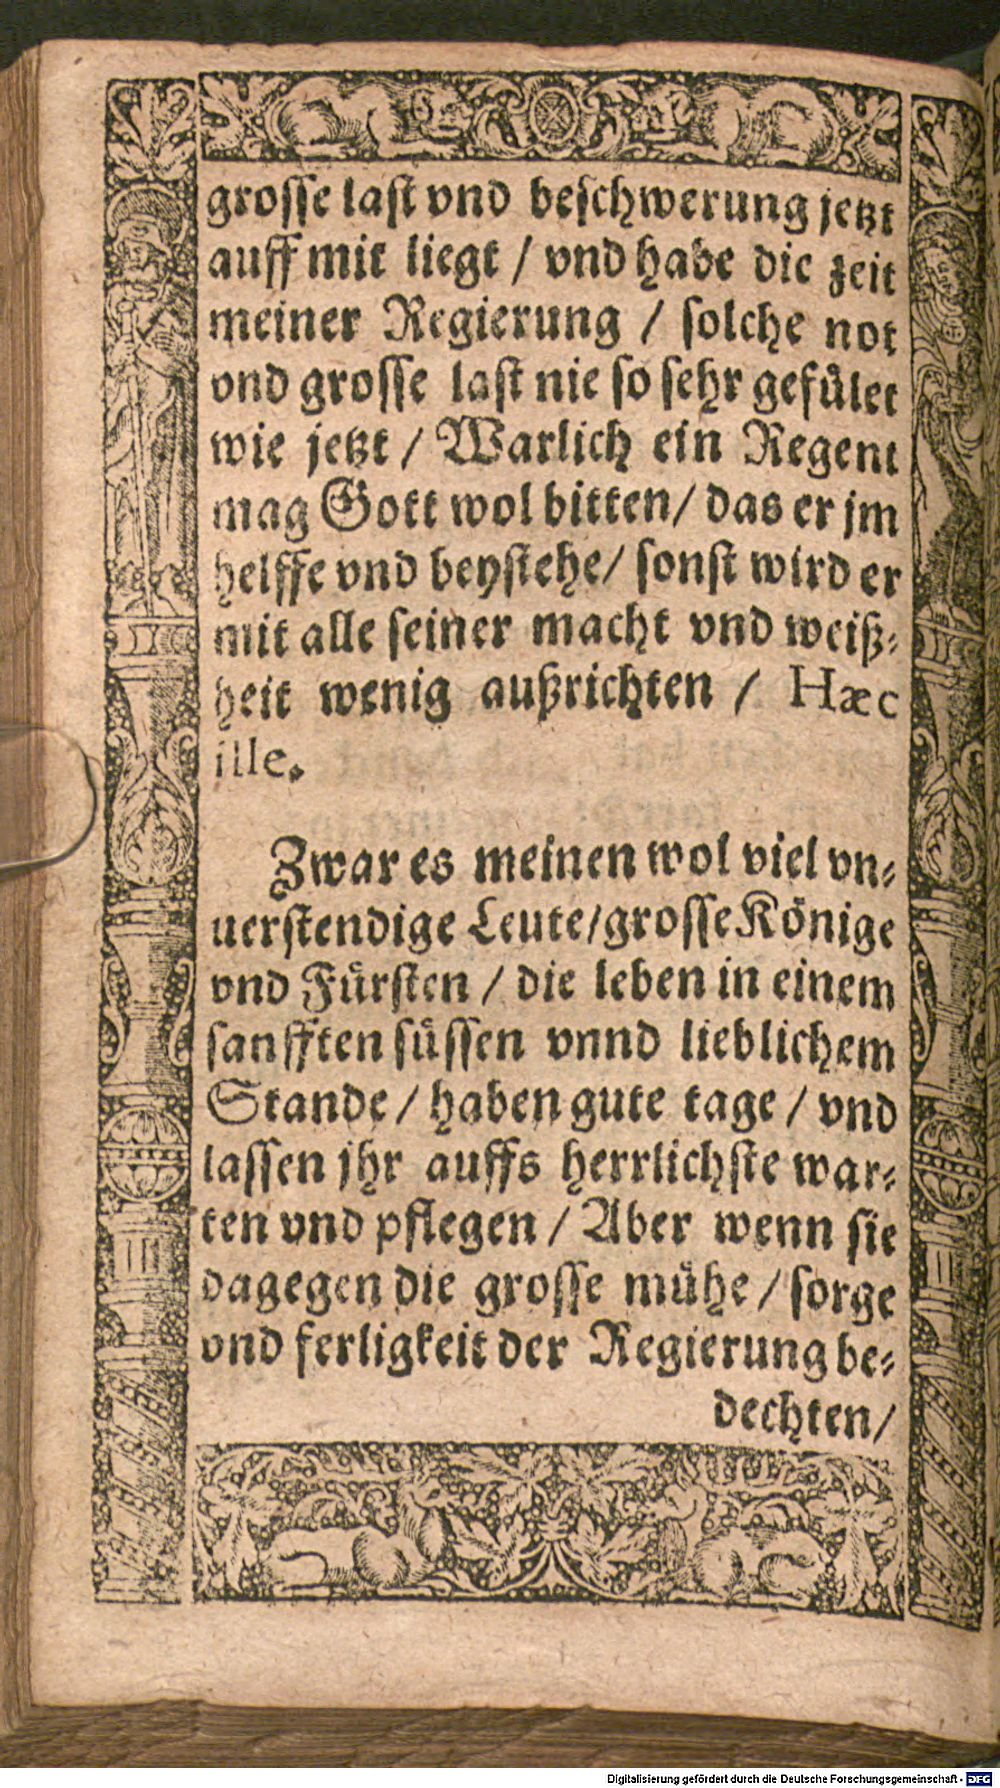 grosse last vnd beschwerung jetzt
auff mit liegt / vnd habe die zeit
meiner Regierung / solche not
vnd grosse last nie so sehr gefület
wie jetzt / Warlich ein Regent
mag Gott wol bitten / das er jm
helffe vnd beystehe / sonst wird er
mit alle seiner macht vnd weiß-
heit wenig außrichten / Hæc
ille.
Zwar es meinen wol viel vn-
uerstendige Leute / grosse Könige
vnd Fürsten / die leben in einem
sanfften süssen vnnd lieblichem
Stande / haben gute tage / vnd
lassen jhr auffs herrlichste war-
ten vnd pflegen / Aber wenn sie
dagegen die grosse mühe / sorge
vnd ferligkeit der Regierung be-
dechten /
Digitalisierung gefördert durch die Deutsche Forschungsgemeinschaft - DFG